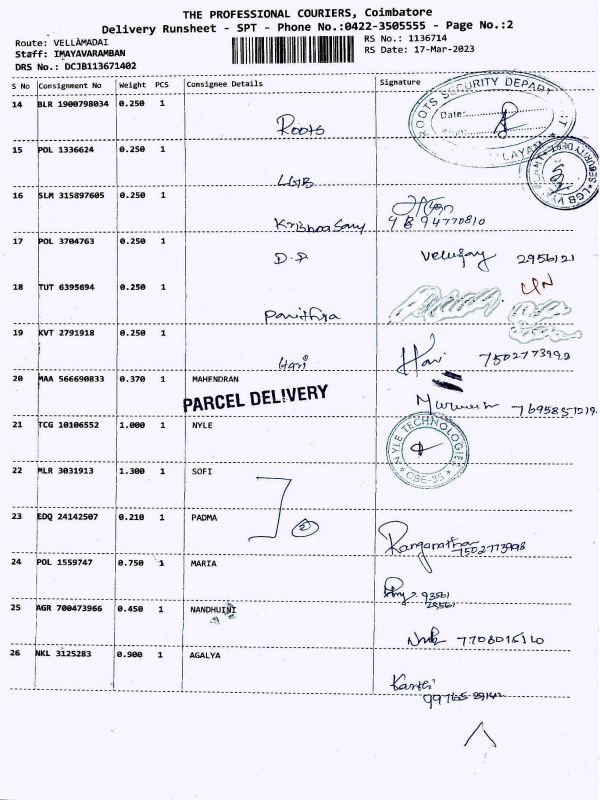 THE PROFESSIONAL COURIERS, Coimbatore
Delivery Runsheet - SPT - Phone No.:0422-3505555 - Page No.:2
Route: VELLAMADAI RS No.: 1136714
Staff: IMAYAVARAMBAN RS Date: 17-Mar-2023
DRS No.: DCJB113671402
S No Consignment No Weight PCS Consignee Details Signature
14 BLR 1900798034 0.250 1 Roots
ROOTS SECURITY DEPART
Date:
15 POL 1336624 0.250 1 LGB
16 SLM 315897605 0.250 1 Krishnasamy
9894770810
17 POL 3704763 0.250 1 D.P Velusamy 2956121
18 TUT 6395694 0.250 1 Pavithra
19 KVT 2791918 0.250 1 Hari Hari 7502773993
20 MAA 566690833 0.370 1 MAHENDRAN
PARCEL DELIVERY
21 TCG 10106552 1.000 1 NYLE
NYLE TECHNOLOGIES
CBE-35
22 MLR 3031913 1.300 1 SOFI
23 EDQ 24142507 0.210 1 PADMA
Ranganatha
7502773993
24 POL 1559747 0.750 1 MARIA
25 AGR 700473966 0.450 1 NANDHUINI
26 NKL 3125283 0.900 1 AGALYA